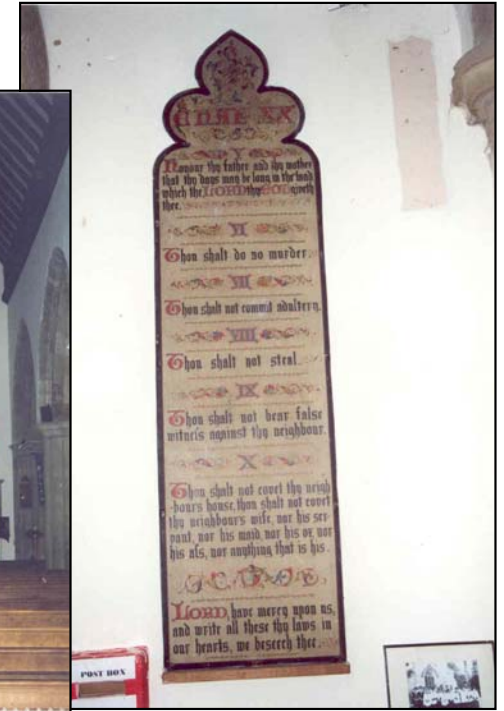 XX
V
Honour thy father and thy mother
that thy days may be long in the land
which the LORD thy GOD giveth
thee.
VI
Thou shalt do no murder.
VII
Thou shalt not commit adultery.
VIII
Thou shalt not steal.
IX
Thou shalt not bear false
witneſs against thy neighbour.
X
Thou shalt not covet thy neigh
-bours house, thou shalt not covet
thy neighbours wife, nor his ser-
vant, nor his maid, nor his ox, nor
his aſs, nor anything that is his.
LORD, have mercy upon us,
and write all these thy laws in
our hearts, we beseech thee.
POST BOX